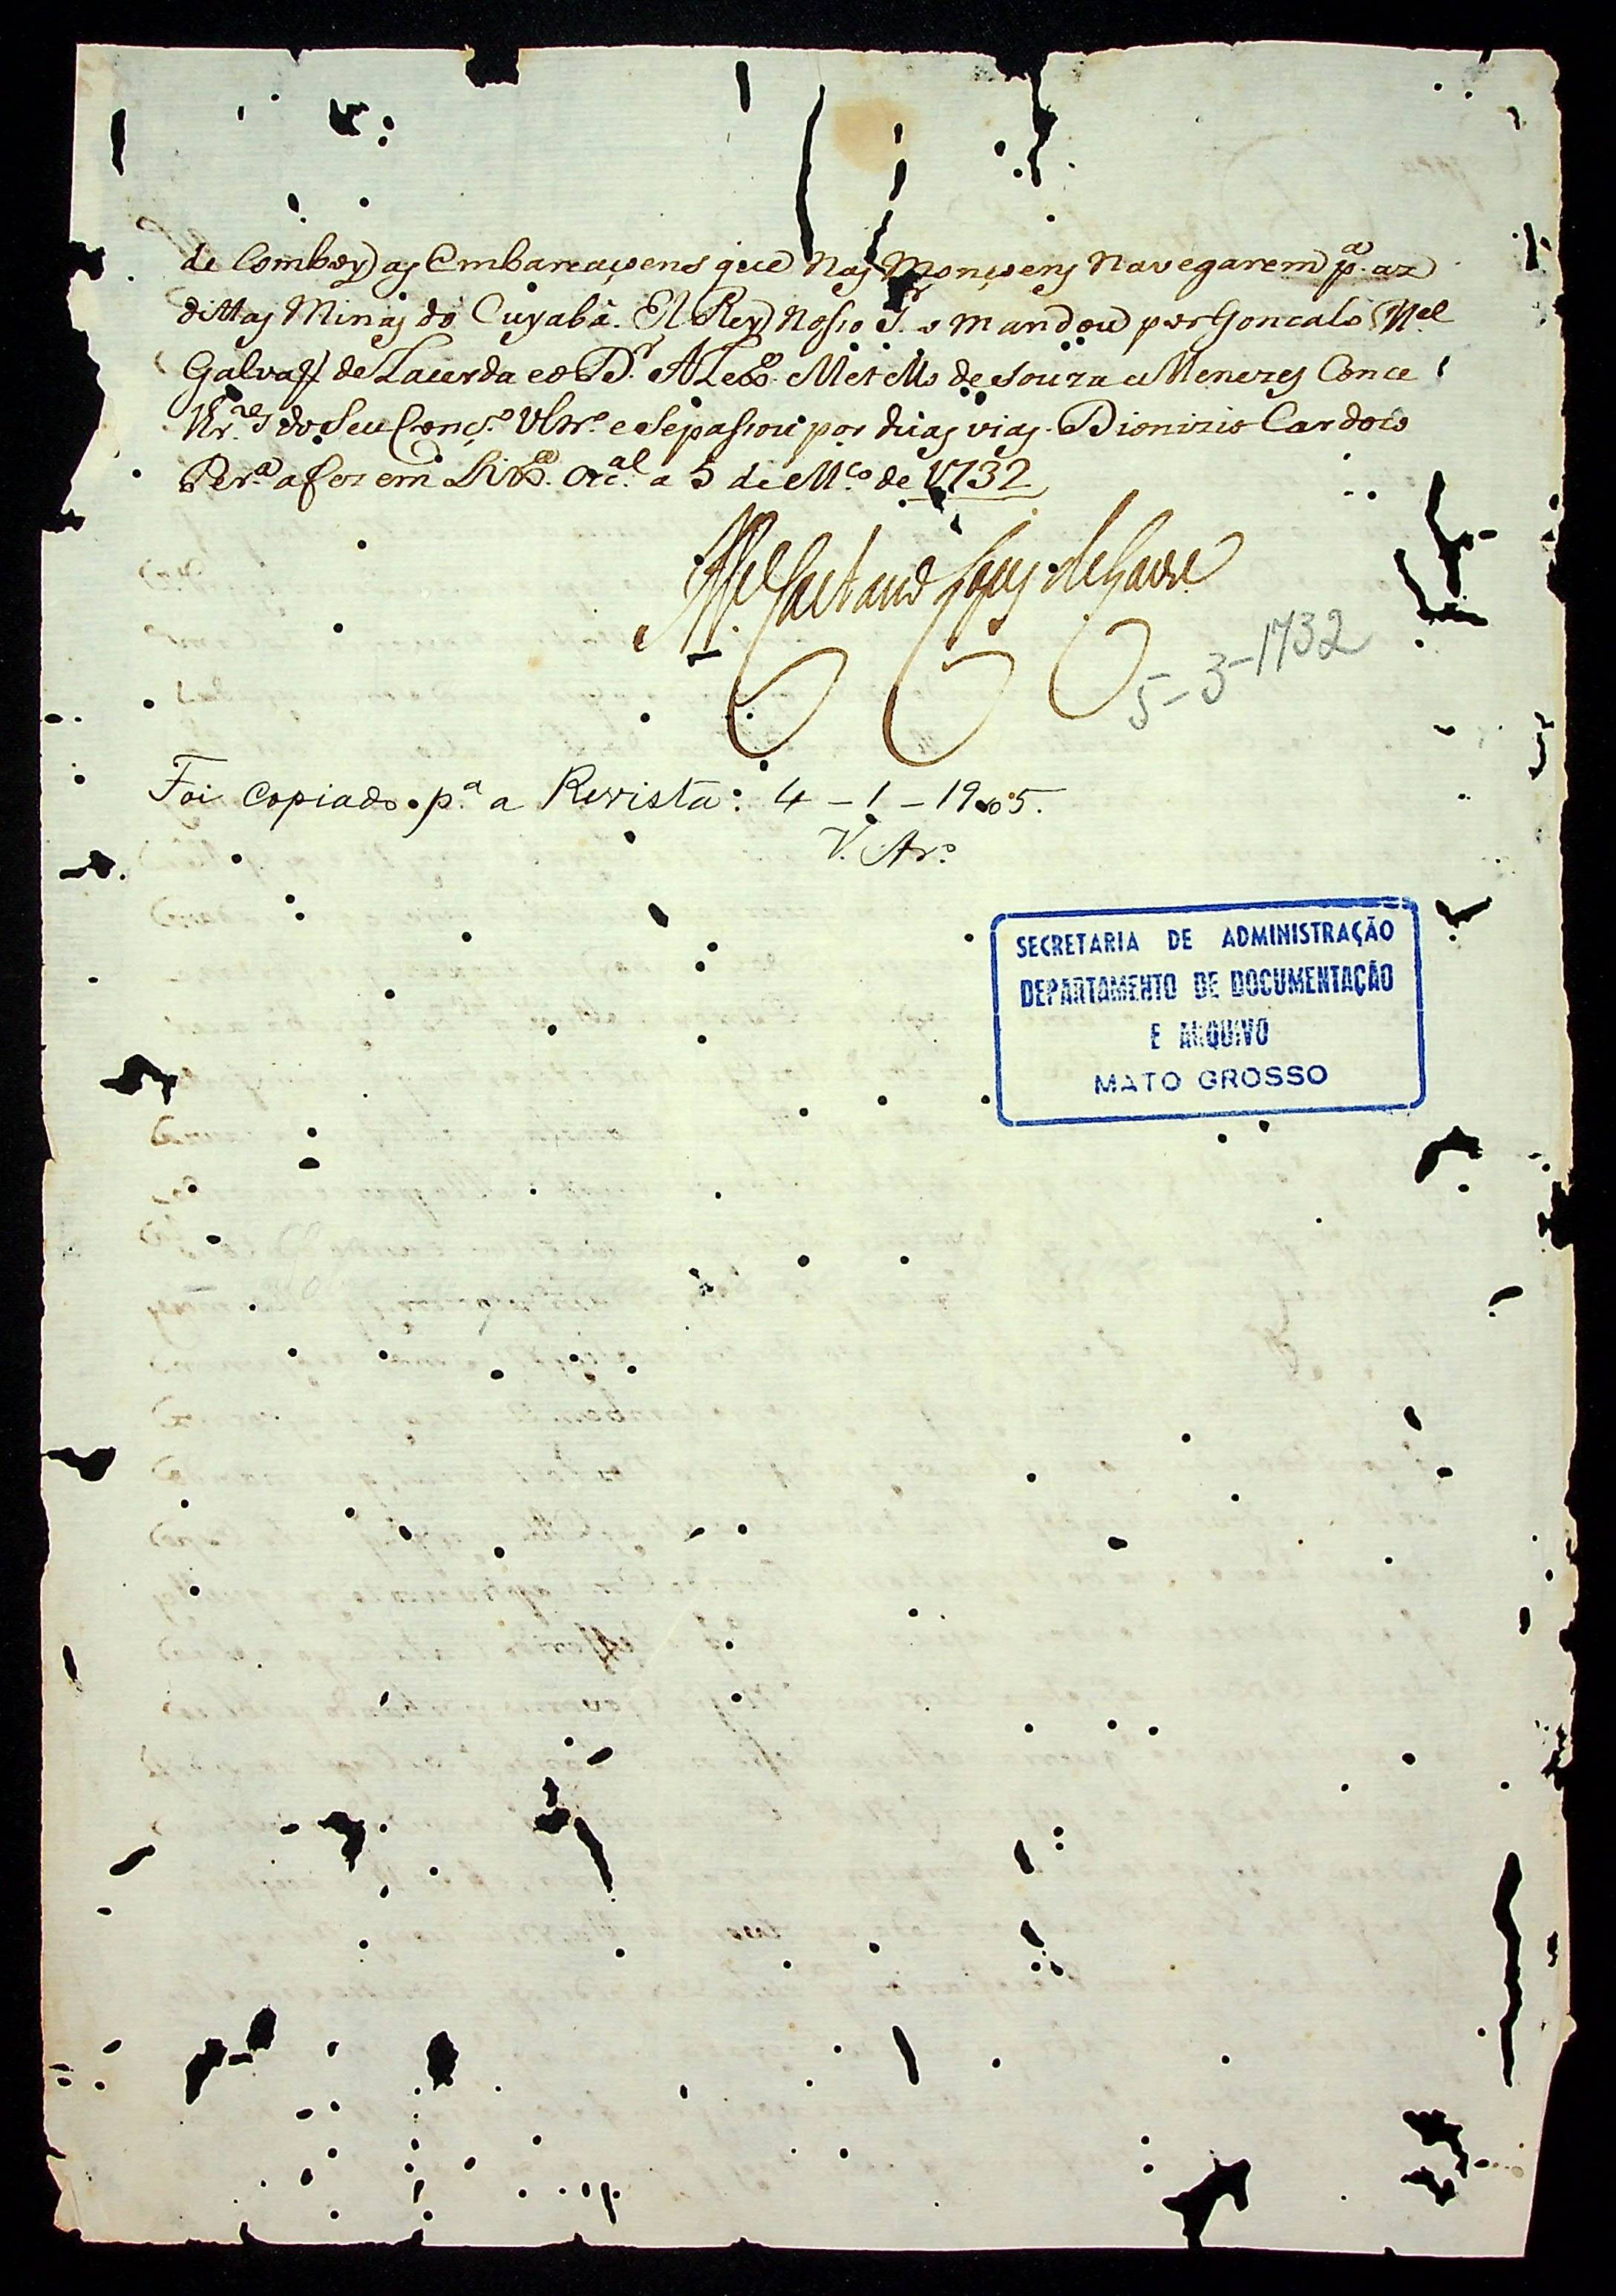 de Comboy as Embarcaçoens que nas Monçoens Navegarem p.ª az
dittas Minas do Cuyabâ. El Rey Nosso S.r o mandou por Goncalo M.el
Galvaõ de Lacerda e o D.r Alex.e Metello de Souza e Menezes Conce
lhr.os do Seu Conç.o Ultr.o e Sepassou por duas vias. Dionizio Cardozo
Per.ª a fez em Lix.ª occ.al a 5 de M.ço de 1732
M.el Caetano Lopes de Lavre
5-3-1732
Foi copiado p.ª a Revista: 4-1-1905.
V. Ar.o
SECRETARIA DE ADMINISTRAÇÃO
DEPARTAMENTO DE DOCUMENTAÇÃO
E ARQUIVO
MATO GROSSO